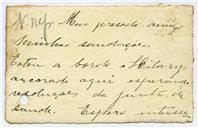 N. rep.
Meu presado amigo
Minhas saudações.
Estou a bordo "Hilary"
ancorado aqui esperando
resoluções da junta de
saude. Espero